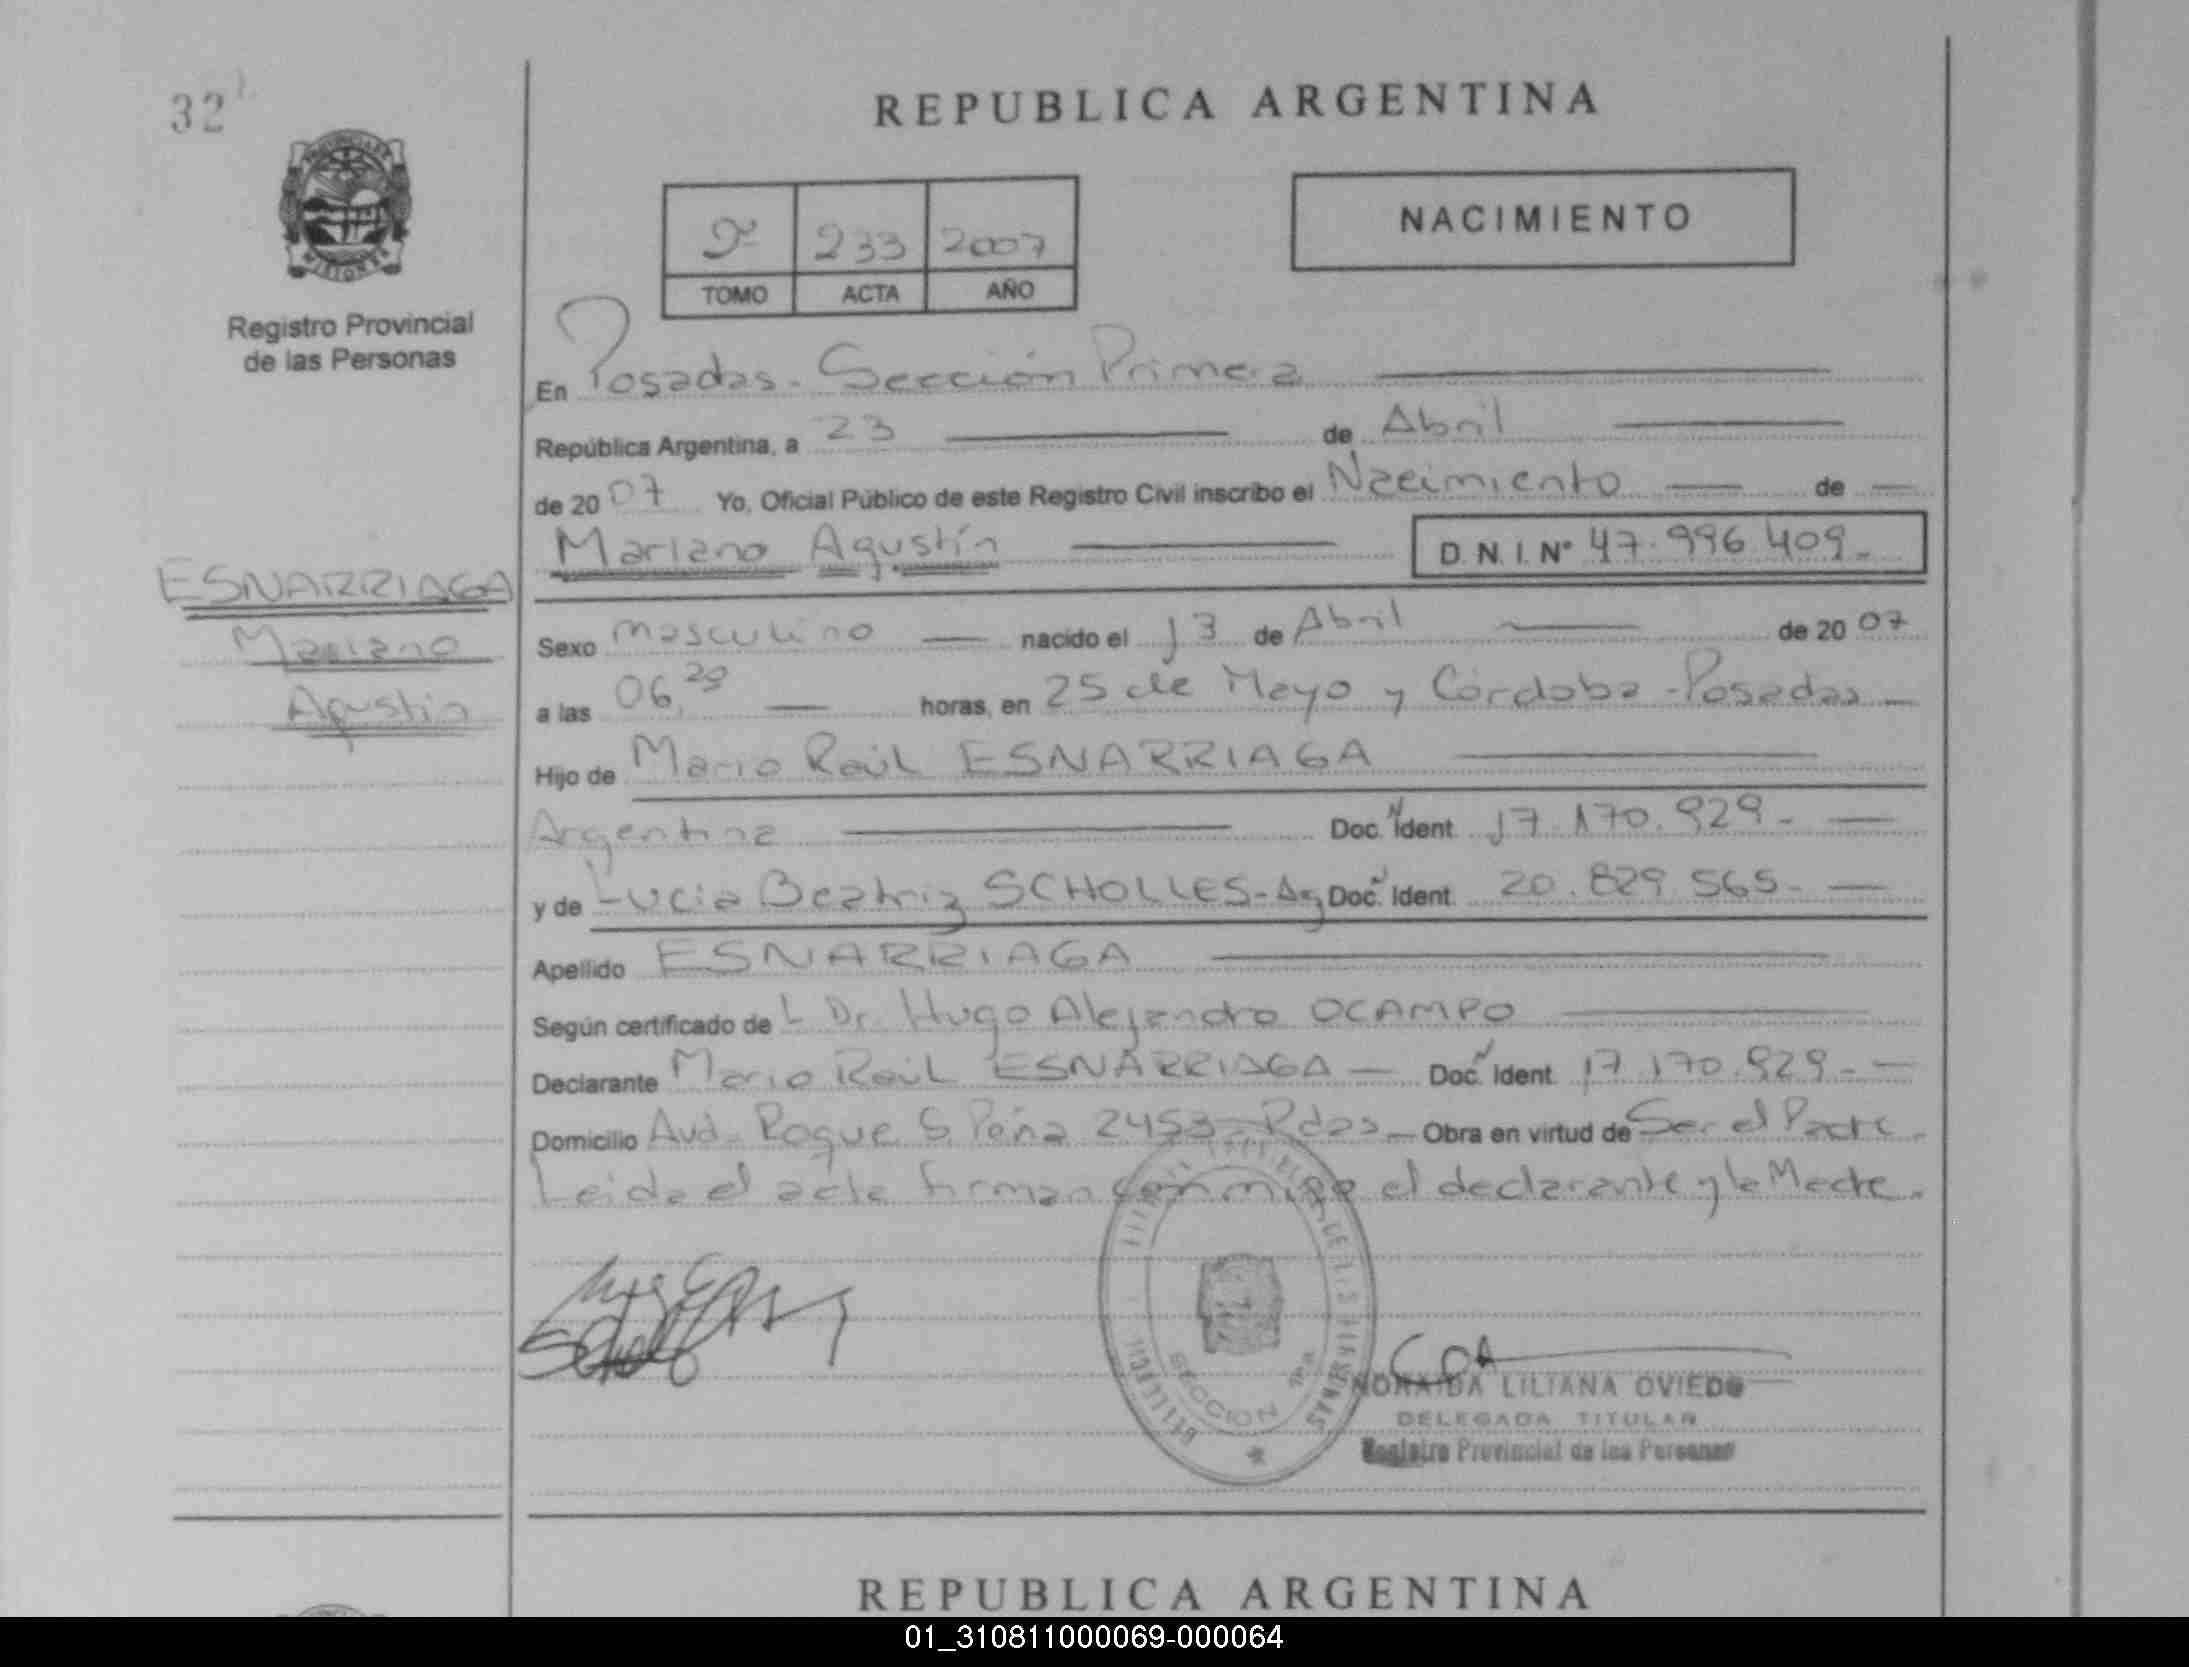 32
REPUBLICA ARGENTINA
NACIMIENTO
2º 233 2007
TOMO ACTA AÑO
Registro Provincial
de las Personas
En Posadas - Sección Primera
República Argentina, a 23 de Abril
de 2007 Yo, Oficial Público de este Registro Civil inscribo el Nacimiento de
Mariano Agustín D.N.I. Nº 47.996.409.-
ESNARRIAGA
Mariano
Agustín
Sexo masculino nacido el 13 de Abril de 2007
a las 06, horas, en 25 de Mayo y Córdoba - Posadas
Hijo de Mario Raúl ESNARRIAGA
Argentina Doc. Ident. 17.170.929.-
y de Lucia Beatriz SCHOLLES - Ag Doc. Ident. 20.829.565.-
Apellido ESNARRIAGA
Según certificado de L Dr. Hugo Alejandro OCAMPO
Declarante Mario Raúl ESNARRIAGA Doc. Ident. 17.170.929.-
Domicilio Avd. Roque S. Peña 2453 - Pdas Obra en virtud de Ser el Padre.
Leida el acta firman conmigo el declarante y la Madre.
SECCION 1RA
NORAIDA LILIANA OVIEDO
DELEGADA TITULAR
Registro Provincial de las Personas
REPUBLICA ARGENTINA
01_310811000069-000064